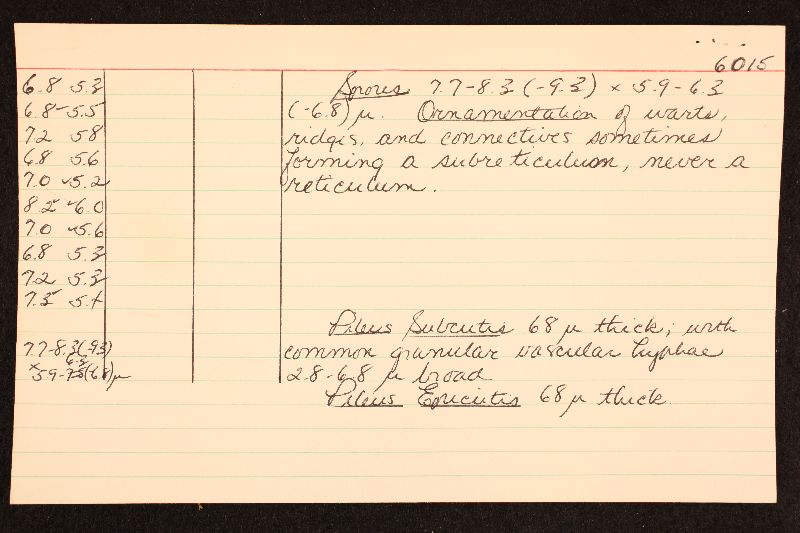 6015
6.8 5.3
6.8 5.5
7.2 5.8
6.8 5.6
7.0 5.2
8.2 6.0
7.0 5.6
6.8 5.3
7.2 5.3
7.3 5.
7.7-8.3(-9.3)
6.3
×5.9-(6.8)μ
Spores 7.7-8.3 (-9.3) × 5.9-6.3
(-6.8) μ. Ornamentation of warts,
ridges, and connectives sometimes
forming a subreticulum, never a
reticulum.
Pileus Subcutis 68 μ thick; with
common granular vascular hyphae
2.8-6.8 μ broad
Pileus Epicutis 68 μ thick